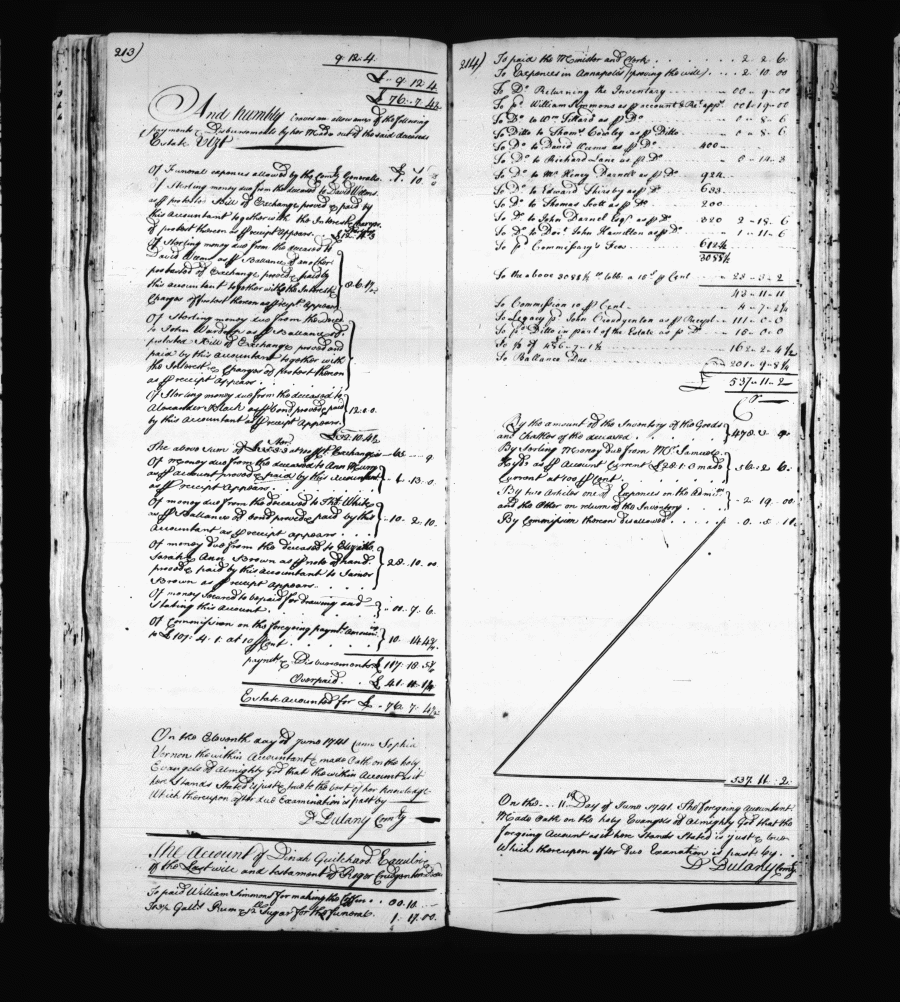 213)
9 12 4
£ - 9 12 4
£ 76 - 7 - 4½
And humbly craves an allowance of the following
Payments & Disbursements by her Made out of the said deceaseds
Estate Vizt
Of Funeral expences allowed by the Comry General £ 10
Of Sterling money due from the deceased to David Weems
as pr protested Bill of Exchange proved & paid by
this Accountant together with the Interest & Charges
of protest thereon as pr receipt appears
Of Sterling money due from the deceased to
David Weems as pr Ballance of another
protested of Exchange proved & paid by
this Accountant together with the Interest &
Charges of protest thereon as pr receipt Appears
Of Sterling money due from the Deced
to John as pr Ballance of
protested Bill of Exchange proved and
paid by this Accountant together with
the Interest & Charges of protest thereon
as pr receipt Appears
Of Sterling money due from the deceased to
Alexander Black as pr bond proved & paid
by this Accountant as pr receipt Appears 12 0 0
£ 32 10 4½
The above sum of at 100 pr Ct Exchange is
Of money due from the deceased to Ann
as pr account proved & paid by this Accountant
as pr receipt Appears 6 - 13 - 0
Of money due from the deceased to White
as pr Ballance of bond proved & paid by this
Accountant as pr receipt appears 10 - 2 - 10
Of money due from the deceased to Elizabth
Sarah & Ann Brown as pr note of hand
proved & paid by this Accountant to James
Brown as pr receipt appears 28 - 10 - 00
Of money secured to be paid for drawing and
Stating this account 00 - 7 - 6
Of Commission on the foregoing paymts Amountg
to £ 107 - 4 - 1 at 10 pr Cent 10 - 14 - 4¾
payments & Disbursements £ 117 - 18 - 5¾
Overpaid £ 41 - 11 - 1¼
Estate accounted for £ 76 - 7 - 4½
On the Eleventh day of June 1741 Came Sophia
Vernon the within Accountant & made Oath on the holy
Evangels of Almighty God that the within Account as it
here Stands Stated is just & true to the best of her knowledge
Which thereupon after due Examination is past by
D Dulany Comry
The Account of Dinah Guilchard Executrix
of the Last will and testament of Roger Crudgenton Deced
To paid William Simmons for making the Coffin 00 - 10 -
To 3½ Gallns Rum & Sugar for the funeral 1 - 17 - 00
214)
To paid the Minister and Clerk 2 - 2 - 6
To Expences in Annapolis (proving the will) 2 - 10 - 00
To Do Returning the Inventory 00 - 9 - 00
To pd William Simmons as pr account & Rect appr 00 - 19 - 00
To Do to Wm Sillard as pr Do 0 - 8 - 6
To Ditto to Thoms Cowley as pr Ditto 0 - 8 - 6
To Do to David Weems as pr Do 400
To Do to Richard Lane as pr Do 0 - 14 - 3
To Do to Mr Henry Darnall as pr Do 924
To Do to Edward as pr Do 633
To Do to Thomas as pr Do 200
To Do to John Darnal Esqr as pr Do 320 2 - 18 - 6
To Do to Doctr John Hamilton as pr Do 1 - 11 - 6
To pd Commissary's Fees 611½
3088½
To the above 3088½ lb tobb a 15s pr Cent 23 - 3 - 2
43 - 11 - 11
To Commission 10 pr Cent 4 - 7 - 2¼
To Legacy pd John Crodgenton as pr Receipt 111 - 0 - 0
To pd Ditto in part of the Estate as pr Do 15 - 0 - 0
To ⅓ of 486 - 7 - 1½ 162 - 2 - 4½
To Ballance Due 201 - 9 - 8¼
£ 537 - 11 - 2
Cr
By the amount of the Inventory of the Goods
and Chattles of the deceased 478 - 3 - 9
By Sterling Money due from Mr Samuel
Hyde as pr Account Current £ 28 - 1 - 3 made
Current at 100 pr Cent 56 - 2 - 6
By two Articles one of Expences on the Admion
and the Other on return of the Inventory 2 - 19 - 00
By Commission thereon Disallowed 0 - 5 - 11
537 - 11 - 2
On the 11th Day of June 1741 The foregoing Accountant
Made Oath on the holy Evangels of Almighty God that the
forgoing Account as it here Stands Stated is just & true
Which thereupon after due Exanation is past by
D Dulany Comry